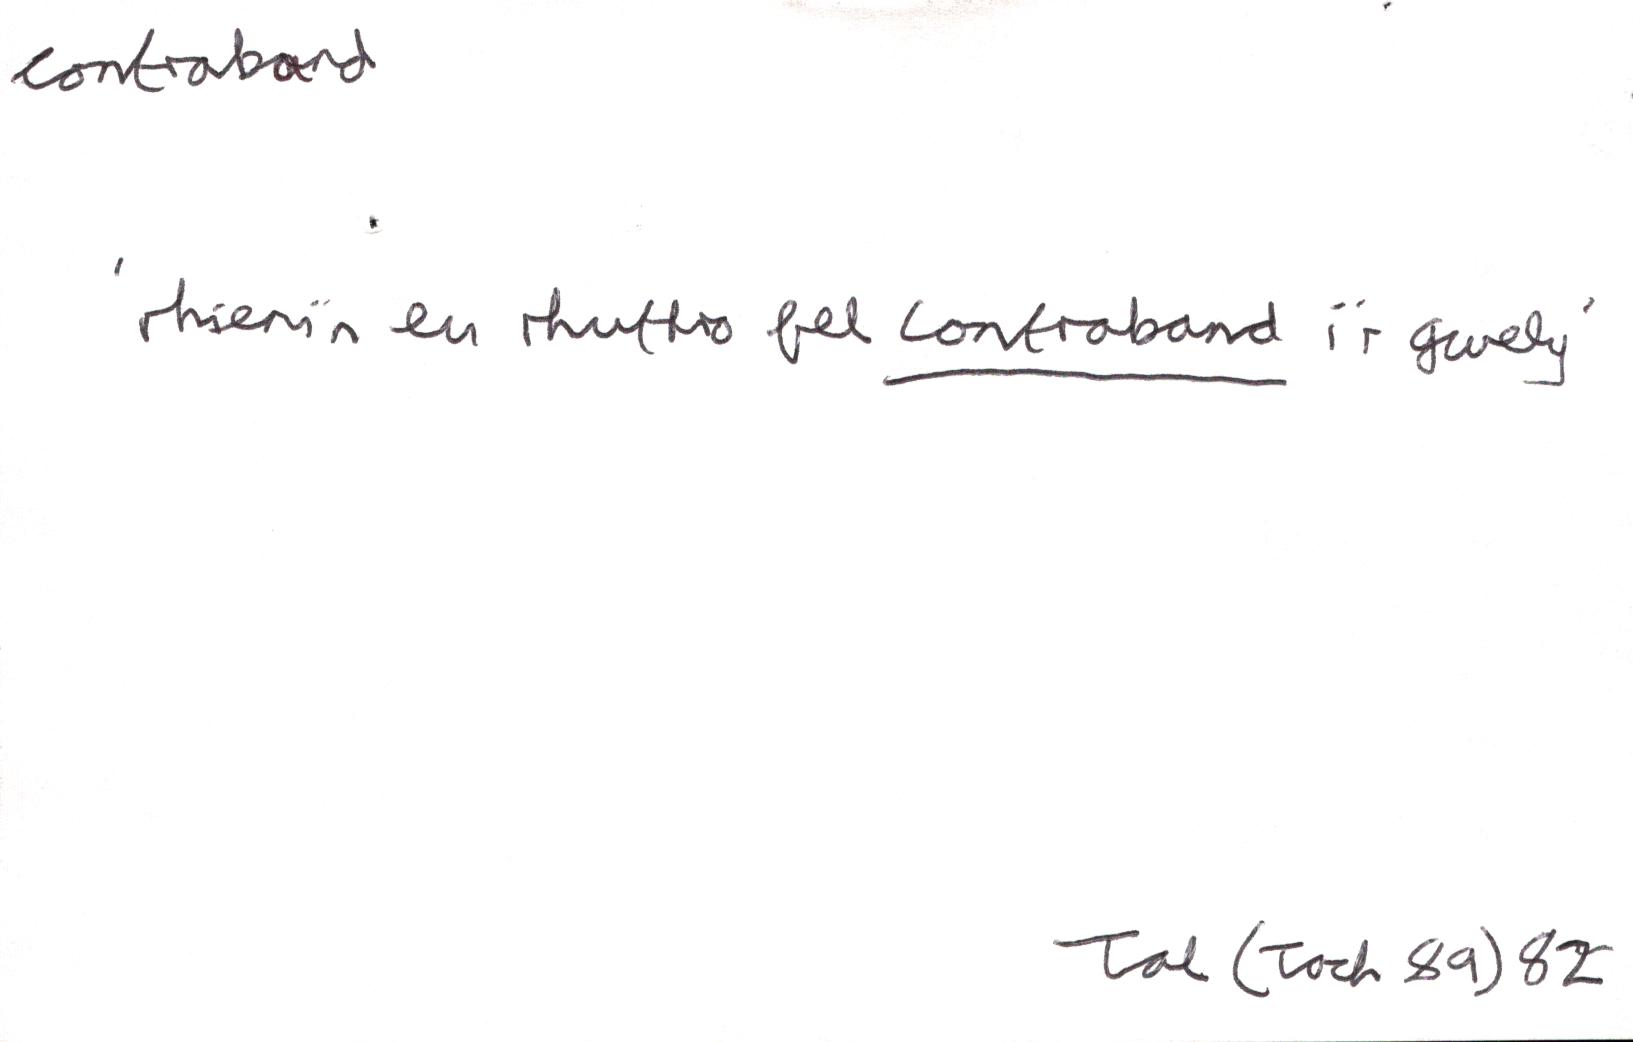 contraband
'rhieni'n eu rhuthro fel contraband i'r gwely'
Tal (Toch 89) 82